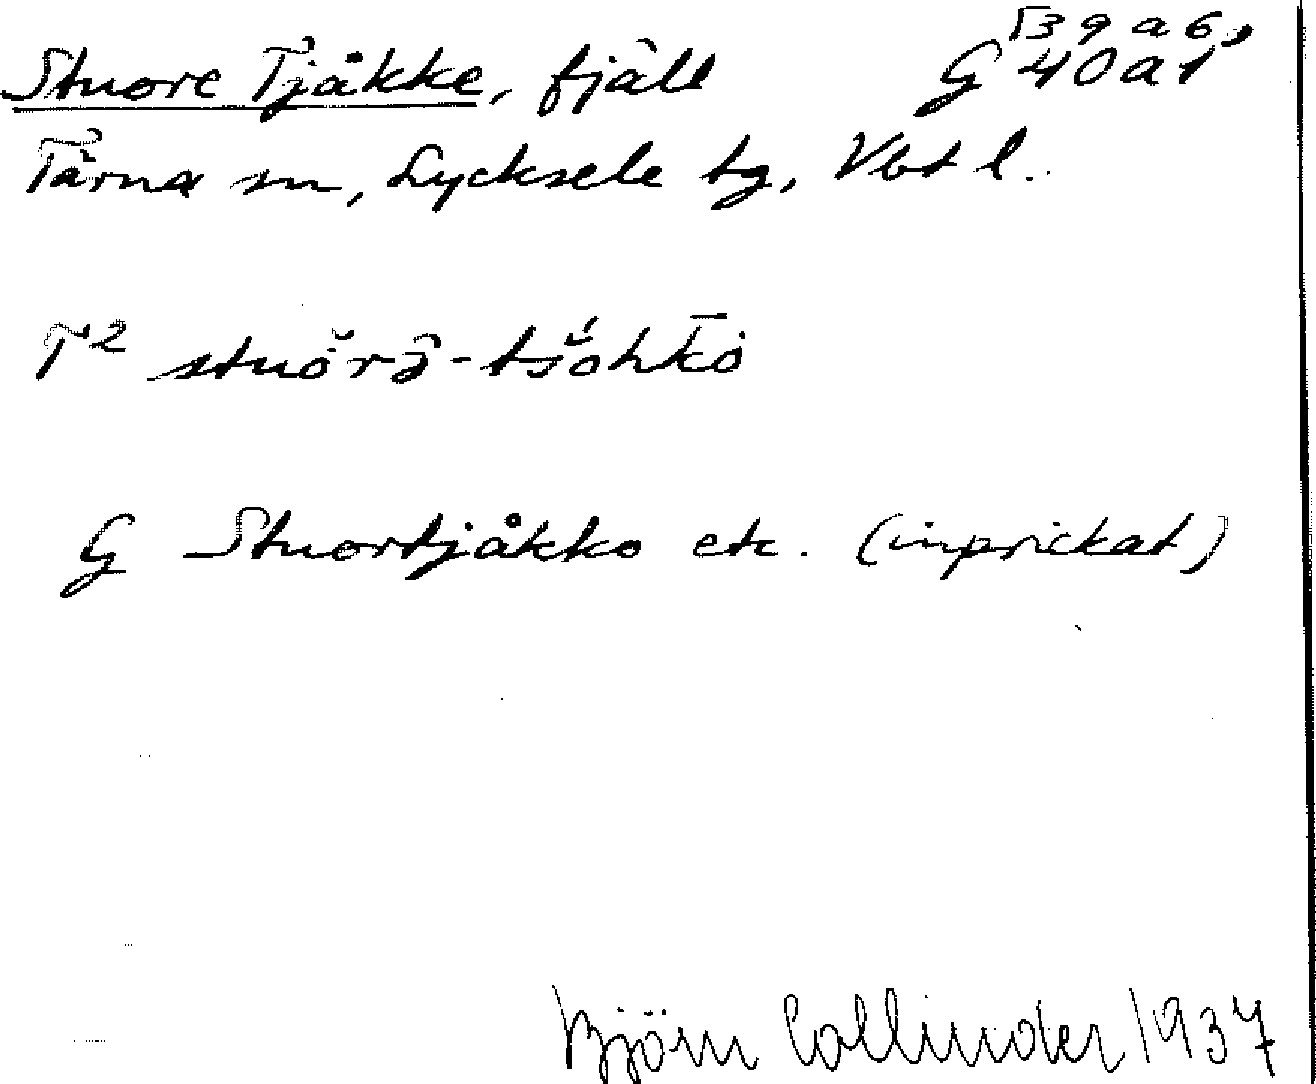 Stuore Tjåkke, fjäll G 39a6, 40a1
Tärna sn, Lycksele tg, Vbt l.
T² stuŏrə̑-tšŏ́hk̄ȯ
G Stuortjåkko etc. (inprickat)
Björn Collinder 1937